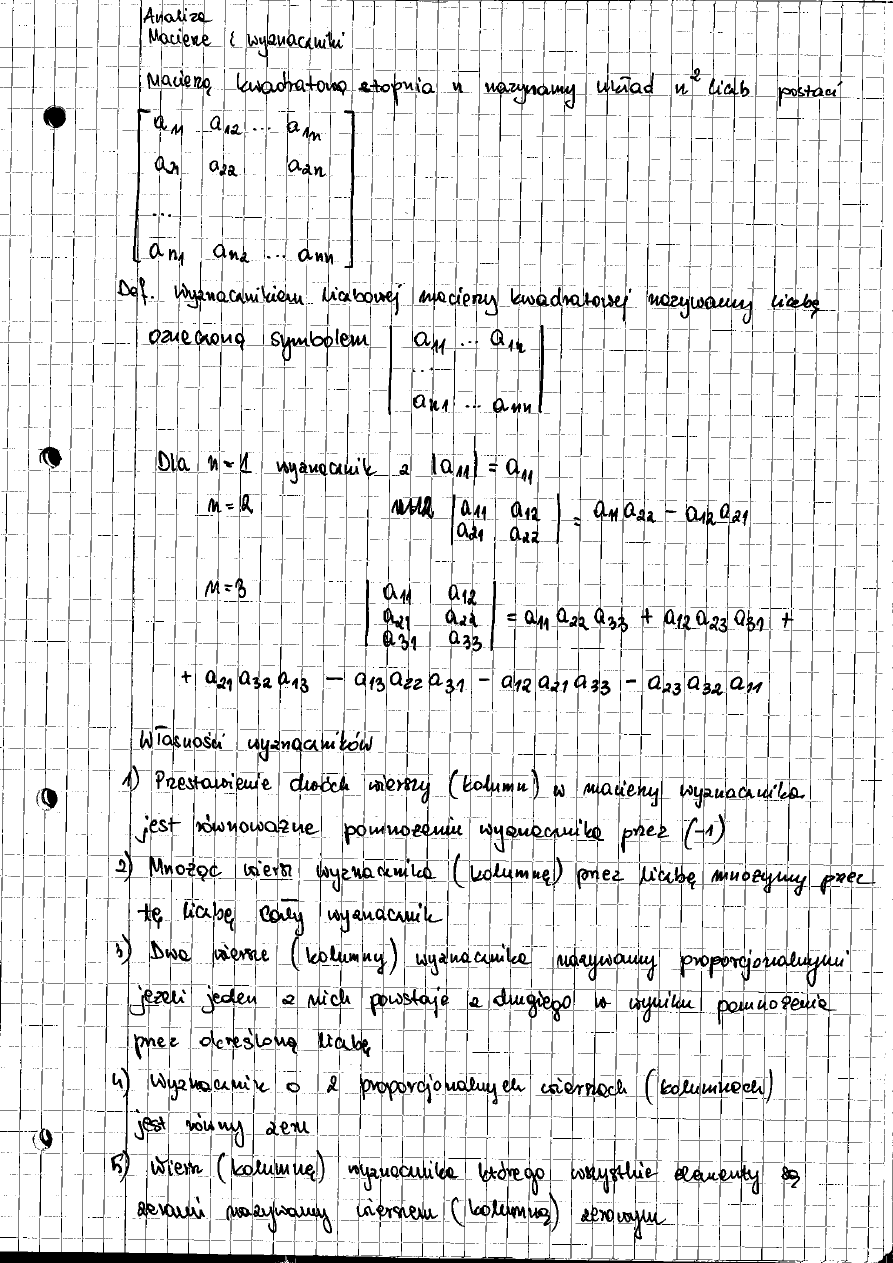 Analiza
Macierze i wyznaczniki
Macierzą kwadratową stopnia n nazynamy układ n² liczb postaci
a₁₁ a₁₂ ... a₁ₙ
a₂₁ a₂₂ a₂ₙ
...
aₙ₁ aₙ₂ ... aₙₙ
Def. Wyznacznikiem liczbowej macierzy kwadratowej nazywamy liczbę
oznaczoną symbolem | a₁₁ ... a₁ₙ |
...
aₙ₁ ... aₙₙ
Dla n=1 wyznacznik z |a₁₁| = a₁₁
n=2 | a₁₁ a₁₂ | = a₁₁a₂₂ − a₁₂a₂₁
a₂₁ a₂₂
n=3 | a₁₁ a₁₂
a₂₁ a₂₂ | = a₁₁a₂₂a₃₃ + a₁₂a₂₃a₃₁ +
a₃₁ a₃₃
+ a₂₁a₃₂a₁₃ − a₁₃a₂₂a₃₁ − a₁₂a₂₁a₃₃ − a₂₃a₃₂a₁₁
Własności wyznaczników
1) Przestawienie dwóch wierszy (kolumn) w macierzy wyznacznika
jest równoważne pomnożeniu wyznacznika przez (-1)
2) Mnożąc wiersz wyznacznika (kolumnę) przez liczbę mnożymy przez
tę liczbę cały wyznacznik
3) Dwa wiersze (kolumny) wyznacznika nazywamy proporcjonalnymi
jeżeli jeden z nich powstaje z drugiego w wyniku pomnożenia
przez określoną liczbę
4) Wyznacznik o 2 proporcjonalnych wierszach (kolumnach)
jest równy zeru
5) Wiersz (kolumnę) wyznacznika którego wszystkie elementy są
zerami nazywamy wierszem (kolumną) zerowym